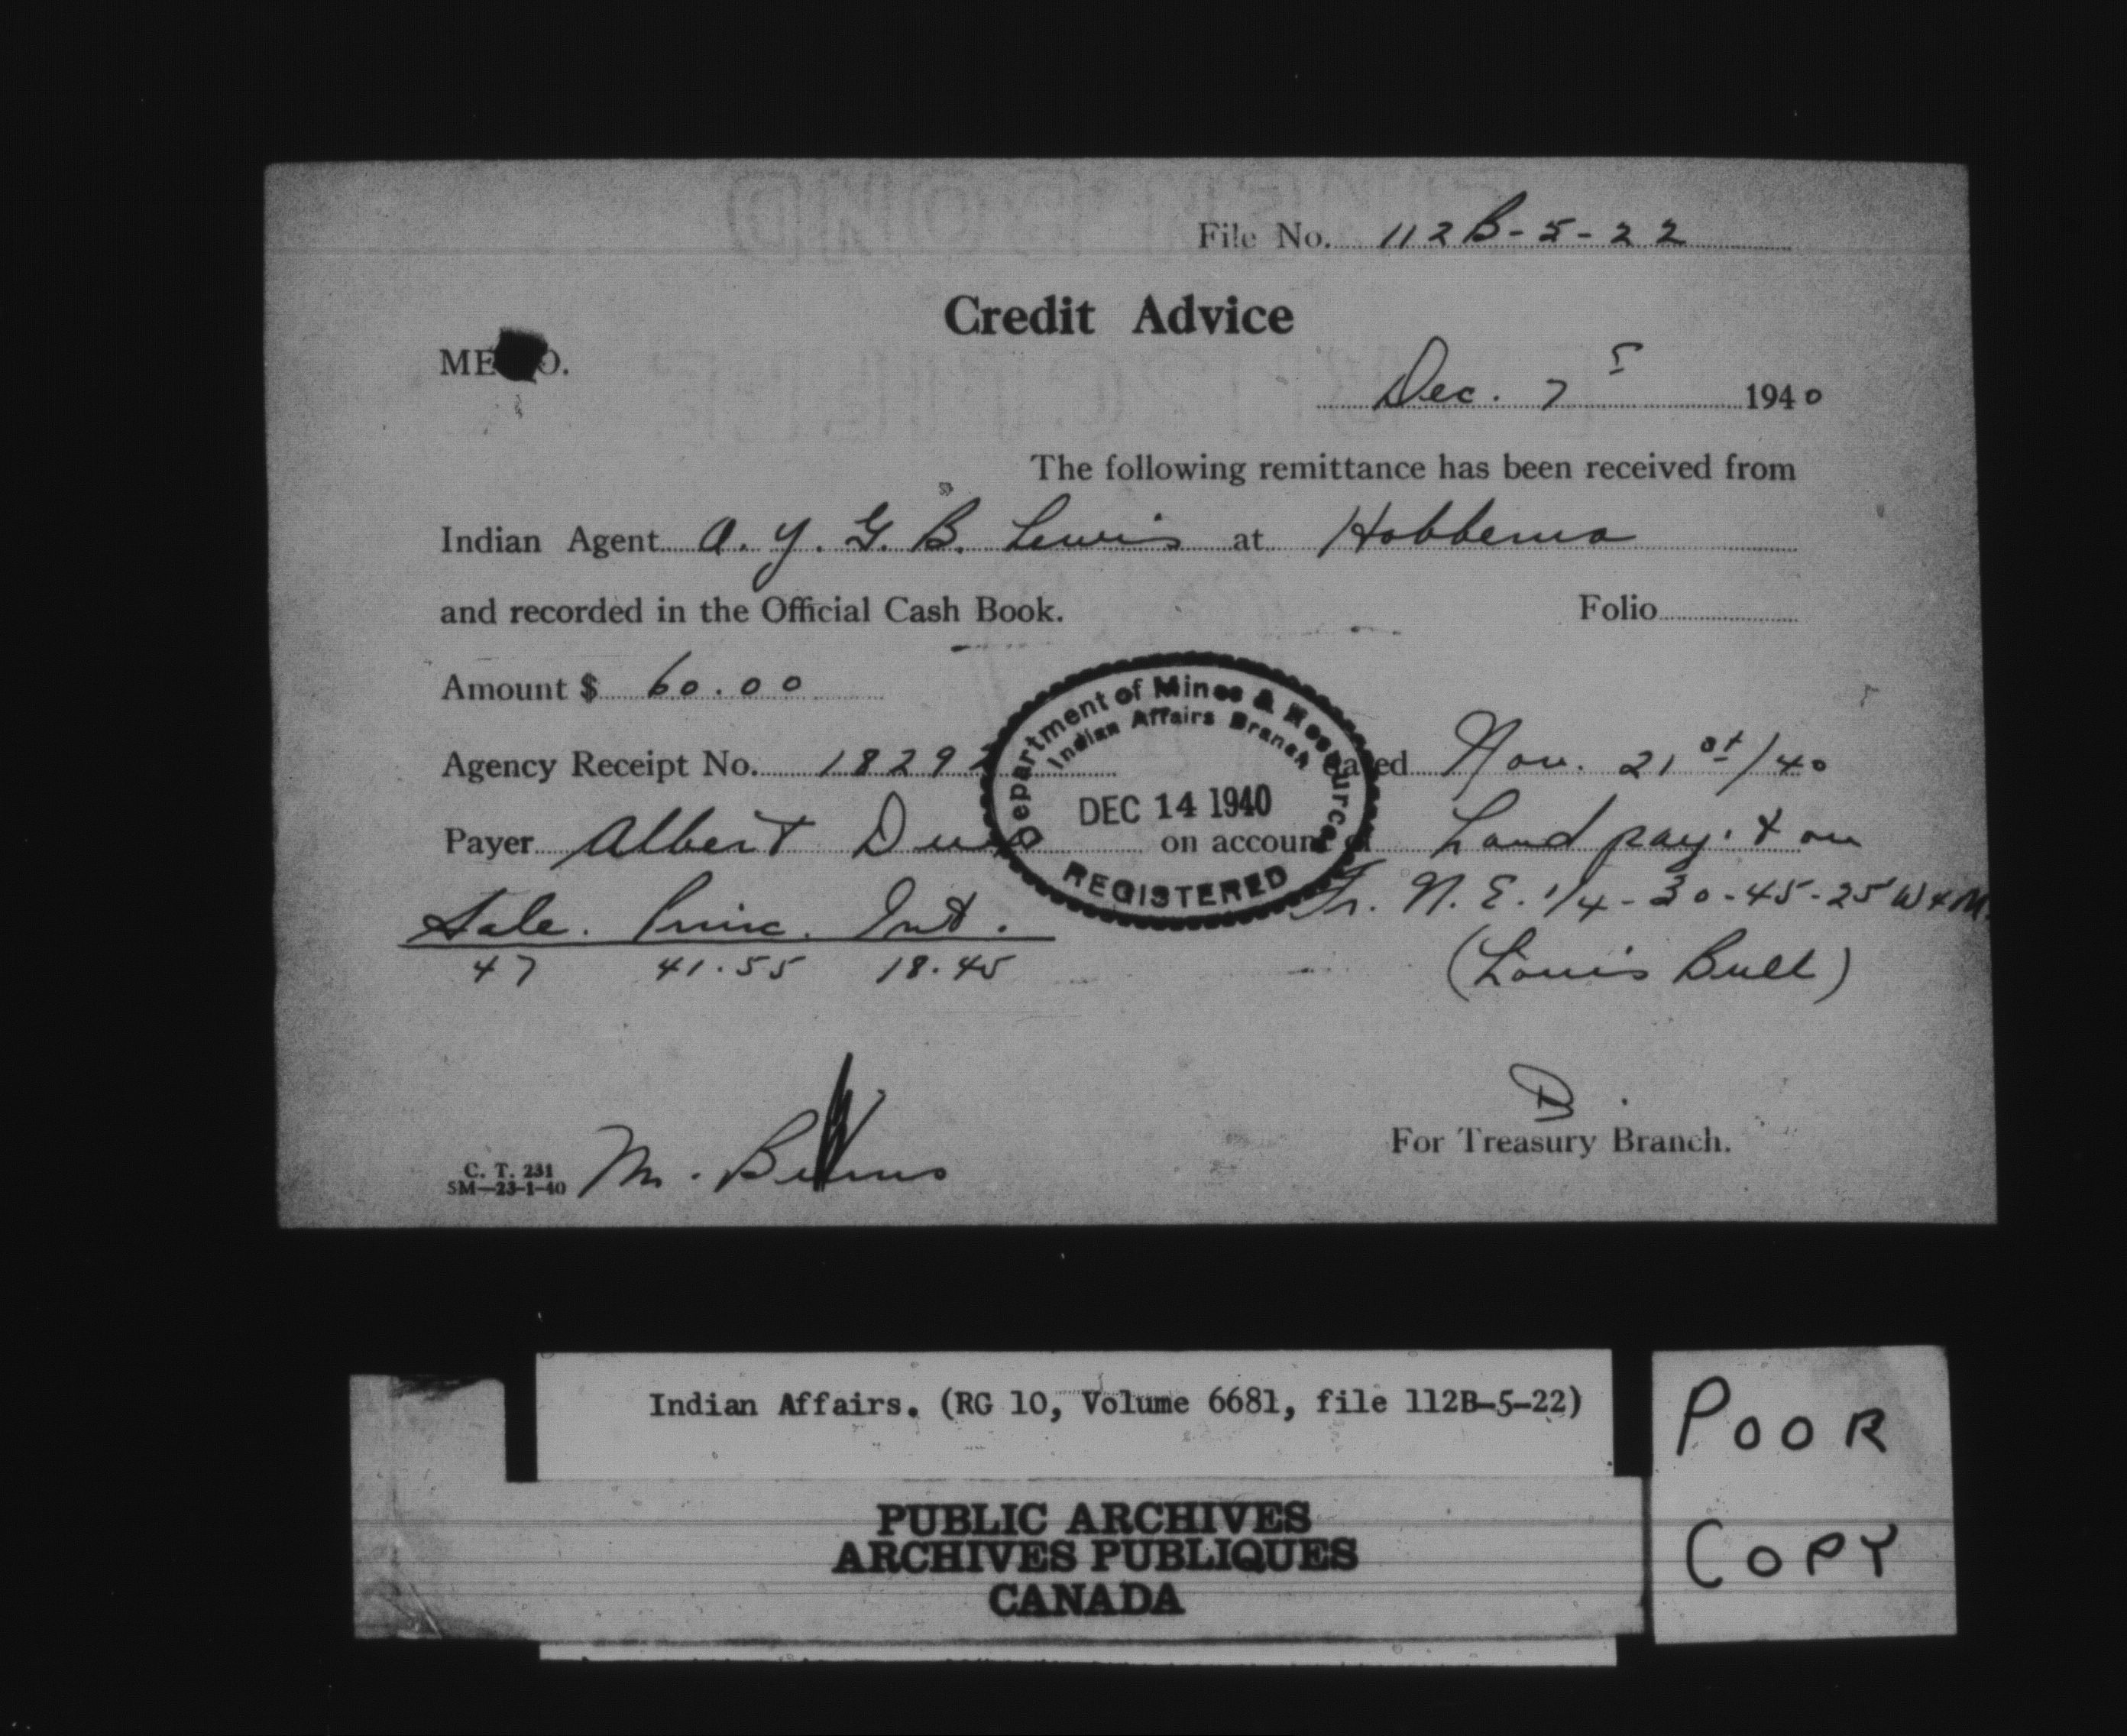 File No. 112B-5-22
Credit Advice
MEMO.
Dec. 7 1940
The following remittance has been received from
Indian Agent A. Y. G. B. Lewis at Hobbema
and recorded in the Official Cash Book. Folio
Amount $ 60.00
Agency Receipt No. 18292 dated Nov. 21st/40
Department of Mines & Resources
Indian Affairs Branch
DEC 14 1940
REGISTERED
Payer Albert on account of Land pay't on
Sale. Princ. Int. Fr. N.E. 1/4-30-45-25 W4M.
47 41.55 18.45 (Louis Bull)
For Treasury Branch.
C. T. 231
5M—23-1-40 M.
Indian Affairs. (RG 10, Volume 6681, file 112B-5-22)
POOR
COPY
PUBLIC ARCHIVES
ARCHIVES PUBLIQUES
CANADA